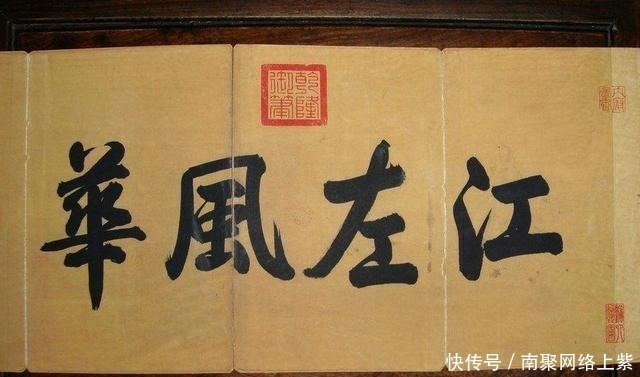 江左風華
乾隆御筆
快传号 / 南聚网络上紫